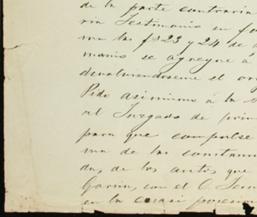 de la parte contraria
ria Testimonio en fo
ma las fs 23 y 24 de
manis se agregue á
denaturandoseme el or
Pido asimismo á la
al Juzgado de prim
para que compulse
ma de las constan
da, de los autos que
Garcia, con el C.
en la casa